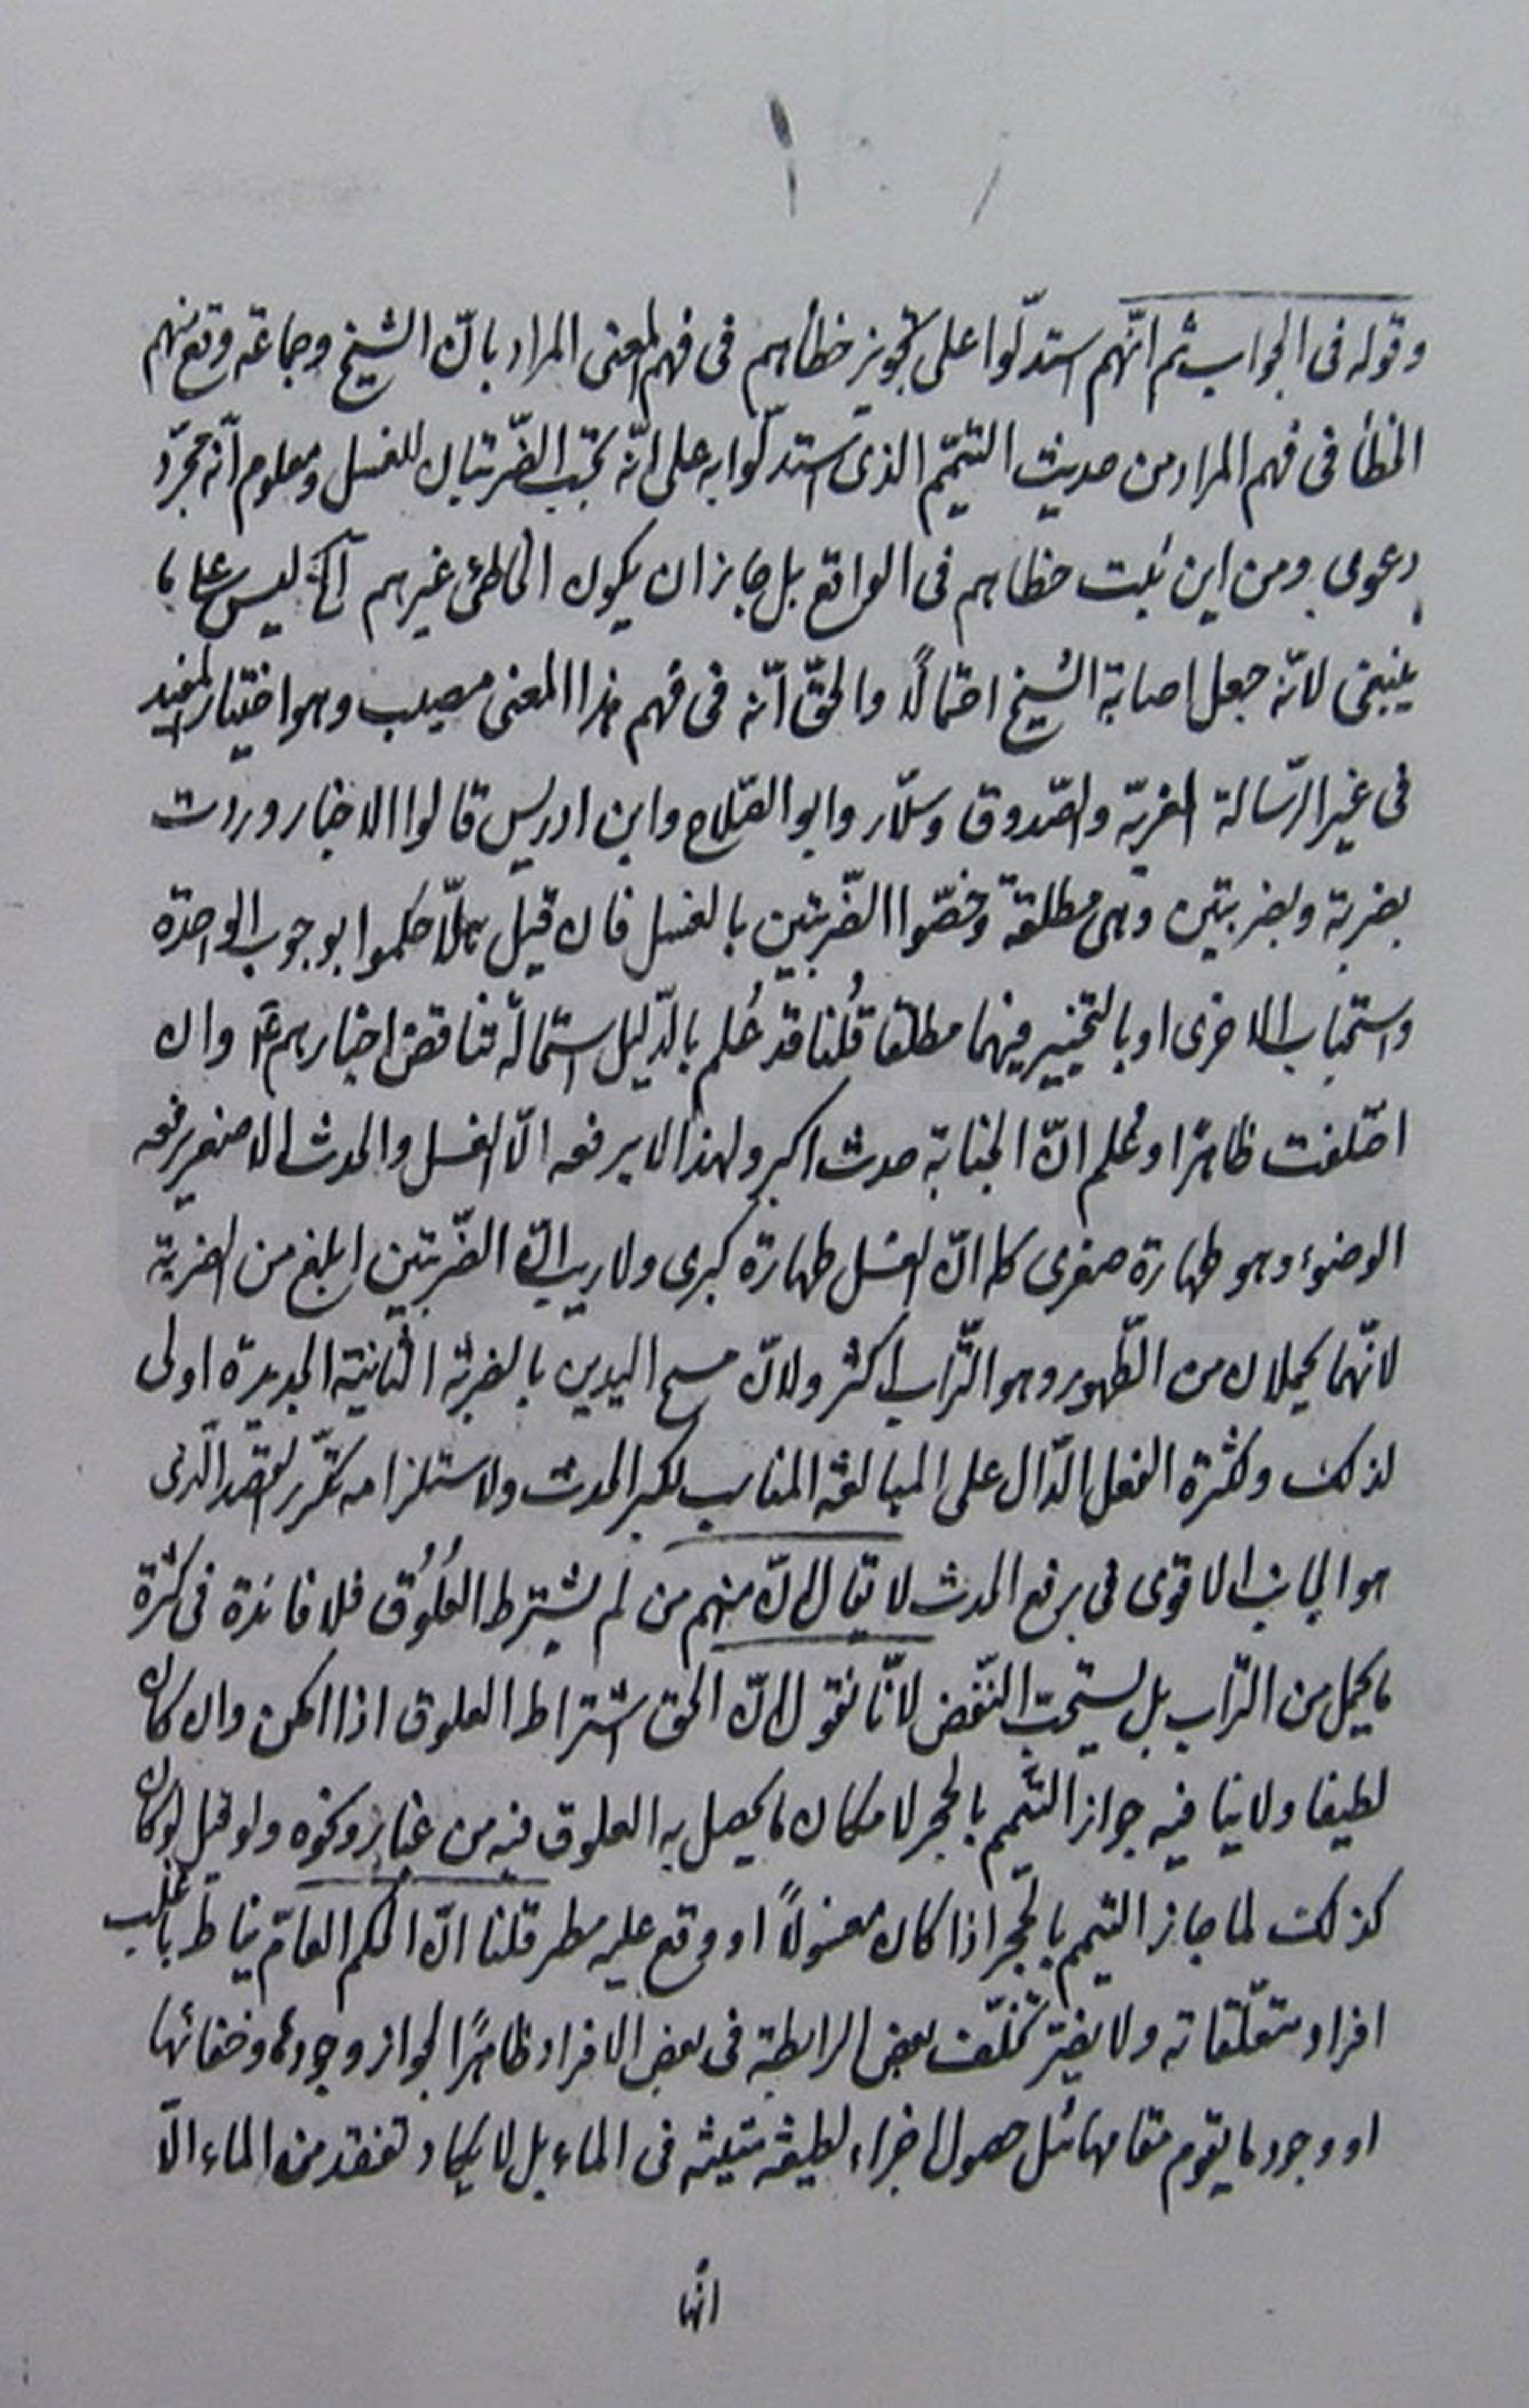 وقوله فى الجواب ثم انّهم استدلّوا على تجويز خطأهم فى فهم المعنى المراد بانّ الشيخ وجماعة وقع منهم
الخطأ فى فهم المراد من حديث التيمّم الذى استدلّوا به على انّه تجب الضّربتان للغسل ومعلوم انّه مجرّد
دعوى ومن اين ثبت خطاهم فى الواقع بل جايز ان يكون الخاطئ غيرهم آلخ ليس على ما
ينبغى لانّه جعل اصابة الشيخ احتمالاً والحقّ انّه فى فهم هذا المعنى مصيب وهو اختيار المفيد
فى غير الرّسالة الغريّة والصّدوق وسلّار وابو الصّلاح وابن ادريس قالوا الاخبار وردت
بضربة وبضربتين وهى مطلقة وخصّوا الضّربتين بالغسل فان قيل هلّا حكموا بوجوب الواحدة
واستحباب الاخرى او بالتخيير فيهما مطلقا قُلنا قد عُلم بالدّليل استحالة تناقض اخبارهم عم وان
اختلفت ظاهرًا وعُلم انّ الجنابة حدث اكبر ولهذا لا يرفعه الّا الغسل والحدث الاصغر يرفعه
الوضوء وهو طهارة صغرى كما انّ الغسل طهارة كبرى ولا ريب انّ الضّربتين ابلغ من الضربة
لانّهما يحملان من الطّهور وهو التّراب اكثر ولانّ مسح اليدين بالضربة الثانية الجديدة اولى
لذلك وكثرة الفعل الدّال على المبالغة المناسب لكبر الحدث ولاستلزامه تكرّر القصد الّذى
هو الجانب الاقوى فى رفع الحدث لا يقال انّ منهم من لم يشترط العُلُوق فلا فائدة فى كثرة
ما يحمل من التّراب بل يستحبّ النّفض لانّا نقول انّ الحق اشتراط العلوق اذا امكن وان كان
لطيفا ولا ينافيه جواز التيمّم بالحجر لامكان ما يحصل به العلوق فيه من غبار ونحوه ولو قيل لو كان
كذلك لما جاز التيمم بالحجر اذا كان مغسولاً او وقع عليه مطر قلنا انّ الحكم العامّ يناط باغلب
افراد متعلّقاته ولا يضرّ تخلّف بعض الرابطة فى بعض الافراد ظاهرًا لجواز وجودها وخفائها
او وجود ما يقوم مقامها مثل حصول اجزاء لطيفة فى الماء بل لا يكاد تفقد من الماء الّا
انها